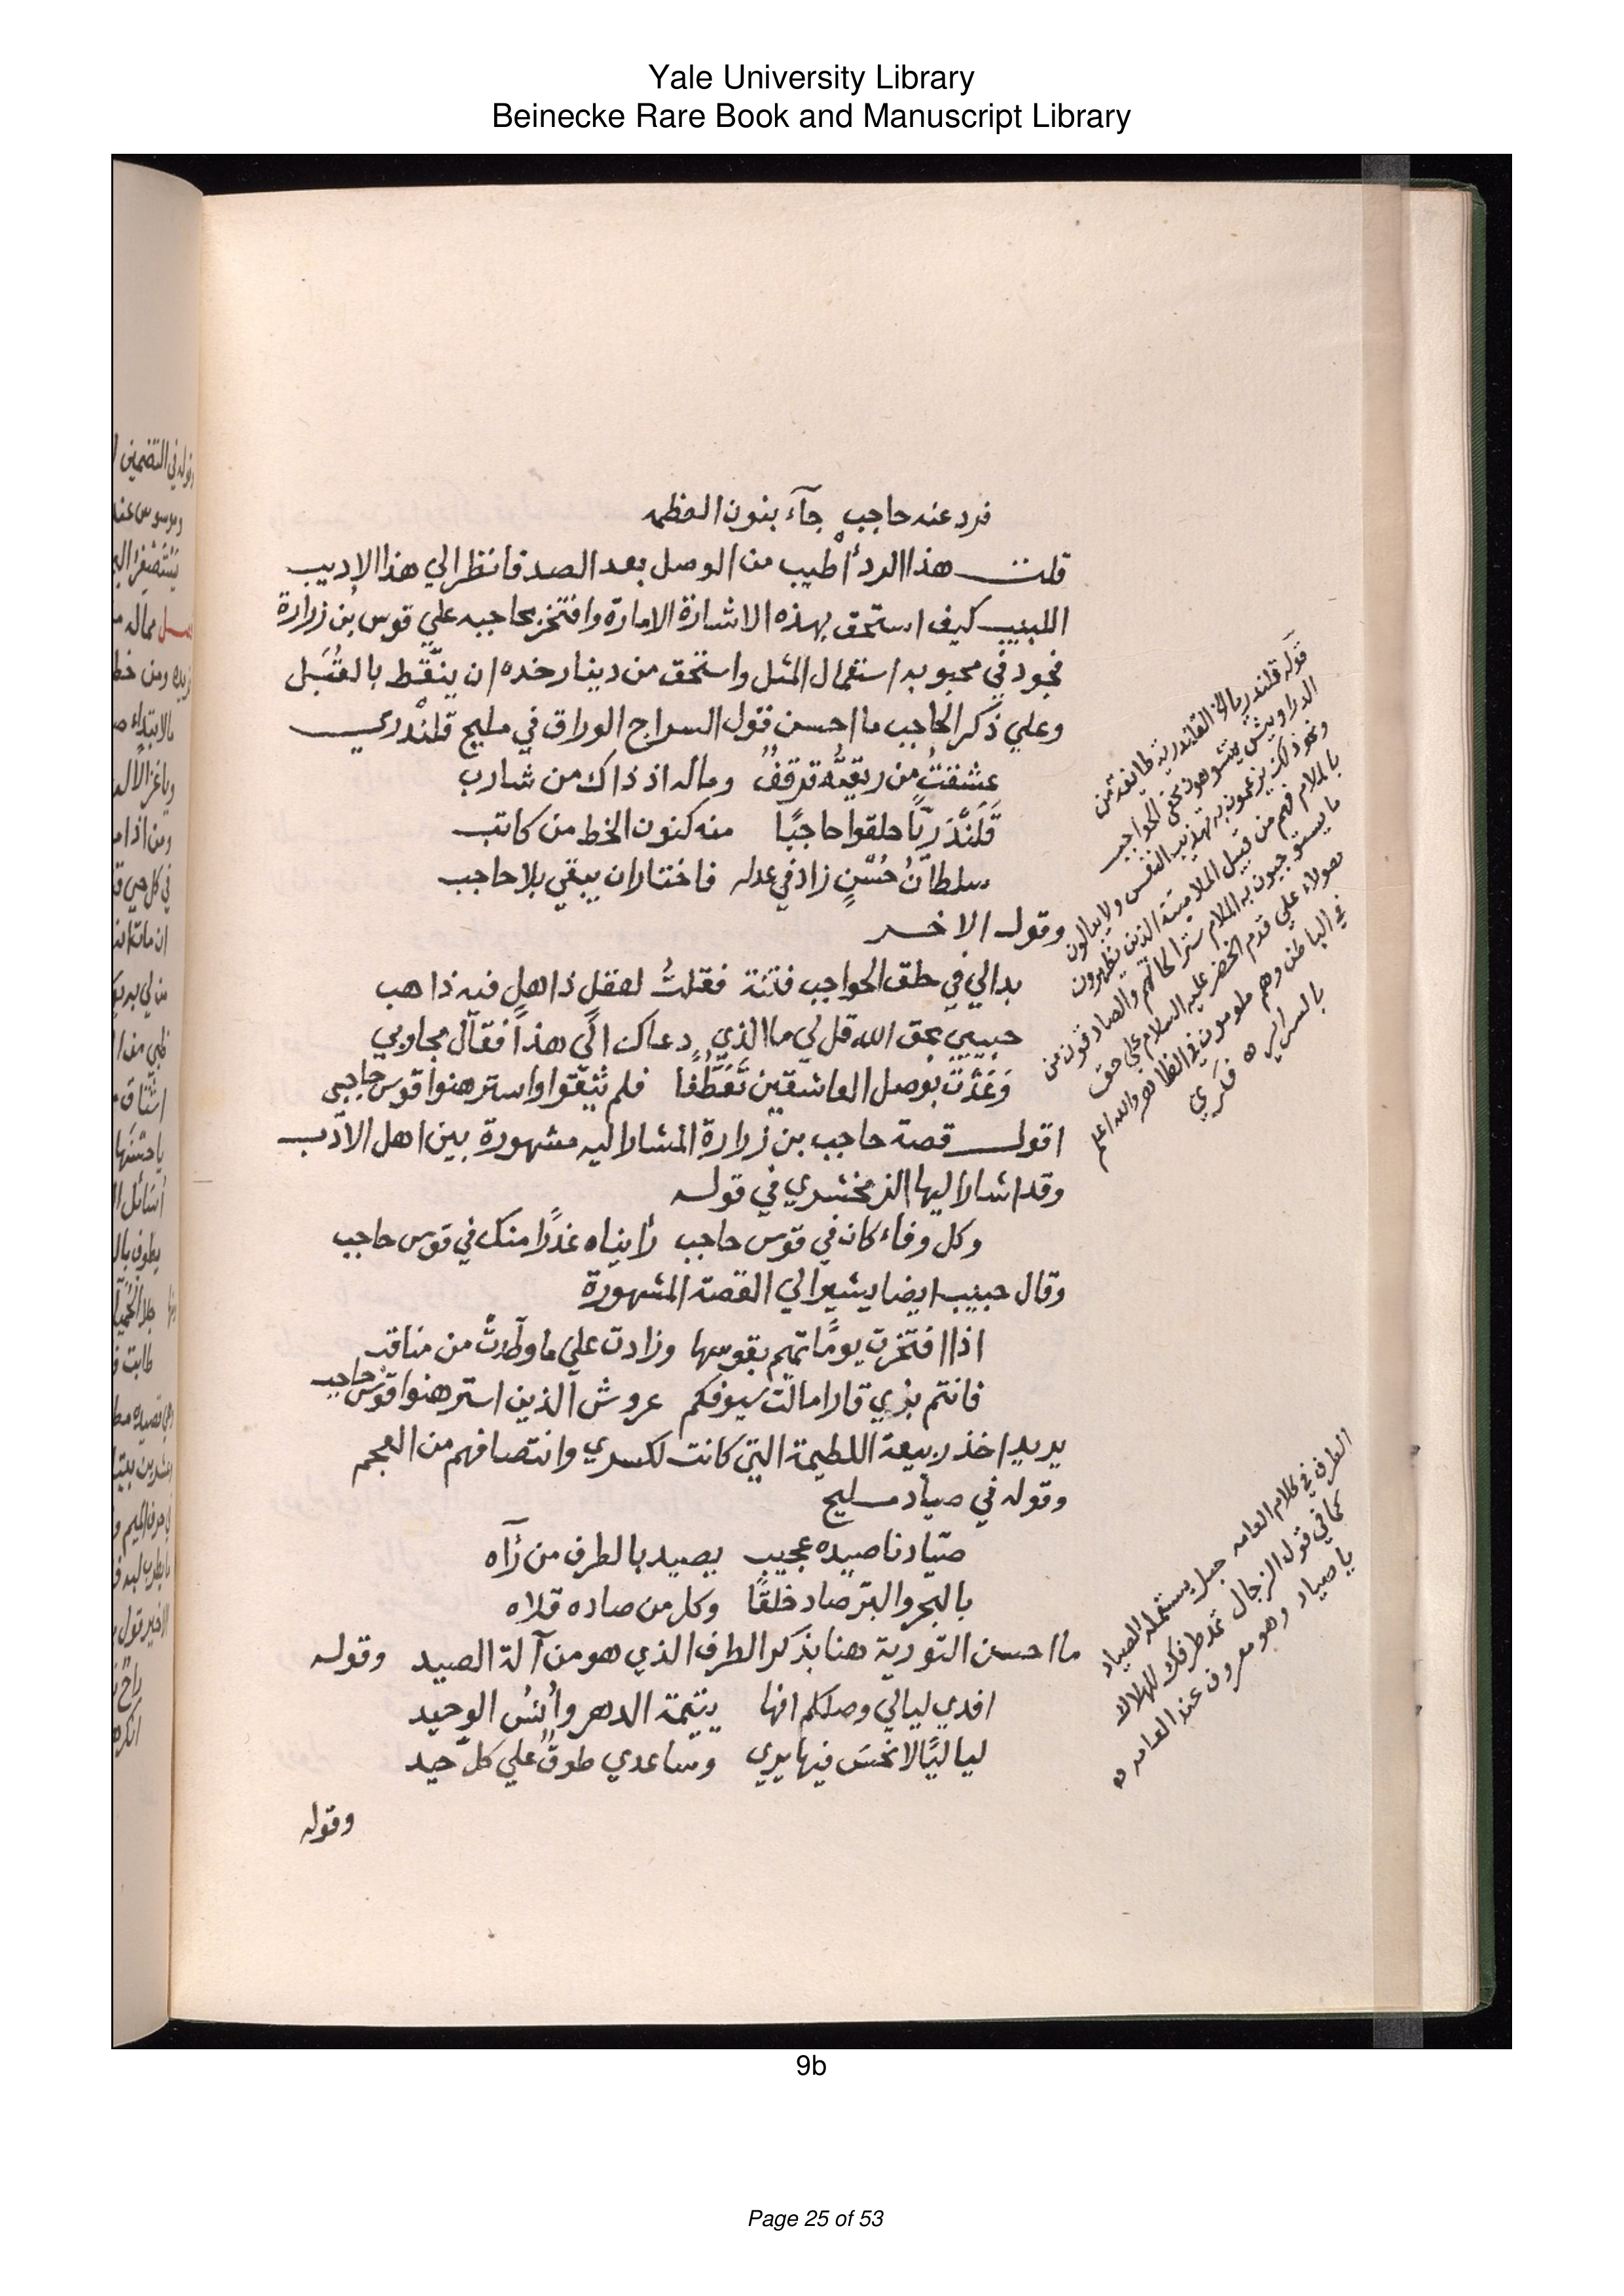 Yale University Library
Beinecke Rare Book and Manuscript Library
فرد عنه حاجب جآء بنون العظمه
قلت هذا الرد أطيب من الوصل بعد الصد فانظر الي هذا الاديب
اللبيب كيف استحق بهذه الاشارة الامارة وافتخر بحاجبه علي قوس بن زرارة
فجود في محبوبه استعمال المثل واستحق من دينار خده ان ينقط بالقُبَل
وعلي ذكر الحاجب ما احسن قول السراج الوراق في مليح قلندري
عشقتُ من ريقتُه قرقفٌ وماله اذ ذاك من شارب
قَلَنْدَريًّا حلقوا حاجبًا منه كنون الخط من كاتب
سلطانُ حُسْنٍ زاد في عدله فاختار ان يبقي بلا حاجب
وقول الاخر
بدالي في حلق الحواجب فتنة فقلتُ لعقلٍ ذاهلٍ فيه ذاهب
حبيبي بحق الله قل لي ما الذي دعاك الي هذا فقال مجاوبي
وَعَدْتُ بوصل العاشقين تَعَطُّفًا فلم يثقوا واسترهنوا قوس حاجبي
اقول قصة حاجب بن زرارة المشار اليه مشهورة بين اهل الادب
وقد اشار اليها الزمخشري في قوله
وكل وفاء كان في قوس حاجب رأيناه غدرًا منك في قوس حاجب
وقال حبيب ايضا يشير الي القصة المشهورة
اذا افتخرت يومًا تميم بقوسها وزادت علي ما وطدتْ من مناقب
فانتم بذي قار امالت سيوفكم عروش الذين استرهنوا قوس حاجب
يريد اخذ ربيعة اللطيمة التي كانت لكسري وانتصافهم من العجم
وقوله في صياد مليح
صيّادنا صيده عجيب يصيد بالطرف من رآه
بالبحر والبر صاد خلقًا وكل من صاده قلاه
ما احسن التورية هنا بذكر الطرف الذي هو من آلة الصيد وقوله
افدي ليالي وصلكم انها يتيمة الدهر وأنسُ الوحيد
لياليًا لا تحسَن فيها يدي وساعدي طوقٌ علي كل جيد
وقوله
قوله قلندريا الخ القلندرية طائفة من
الدراويش يتشوهون بحف الحواجب
ونحو ذلك يزعمون به تهذيب النفس ولا يبالون
بالملام فهم من قبيل الملامتية الذين يظهرون
ما يستوجبون به الملام سترا لحالهم والصادقون من
هولاء علي قدم الخضر عليه السلام علي حق
في الباطن وهم ملومون في الظاهر والله اعلم
بالسراير ه فكري
الطرف في كلام العامه حبل يستعمله الصياد
كما في قول الزجال تمد طرفك للهلاك
يا صياد وهو معروف عند العامه ه
9b
Page 25 of 53